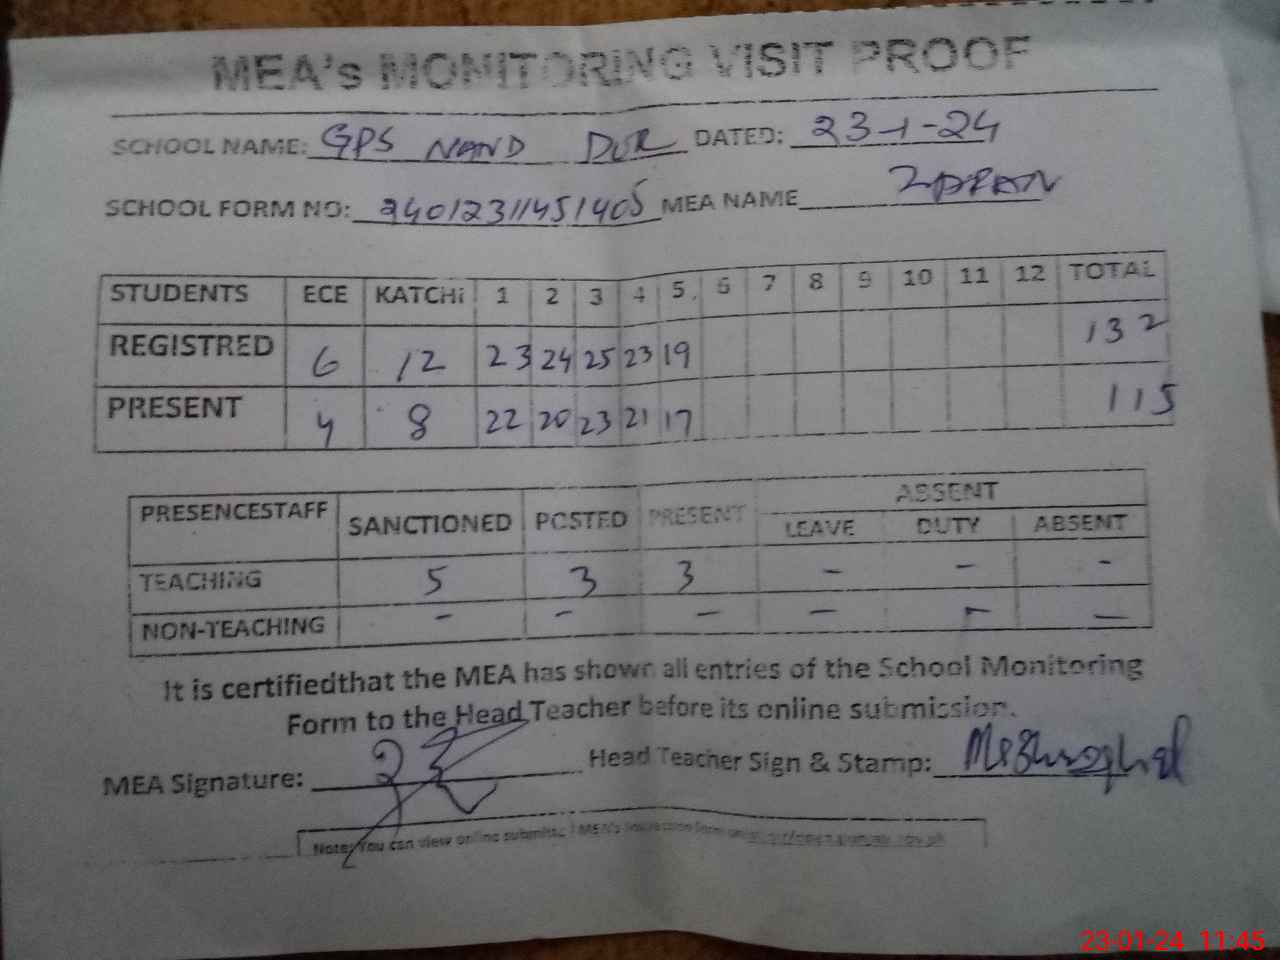 MEA's MONITORING VISIT PROOF
SCHOOL NAME: GPS NAND DUR DATED: 23-1-24
SCHOOL FORM NO: 24012311451405 MEA NAME
STUDENTS ECE KATCHi 1 2 3 4 5 6 7 8 9 10 11 12 TOTAL
REGISTRED 6 12 23 24 25 23 19 132
PRESENT 4 8 22 20 23 21 17 115
ABSENT
PRESENCESTAFF SANCTIONED POSTED PRESENT LEAVE DUTY ABSENT
TEACHING 5 3 3 - - -
NON-TEACHING - - - - - -
It is certifiedthat the MEA has shown all entries of the School Monitoring
Form to the Head Teacher before its online submission.
MEA Signature: Head Teacher Sign & Stamp:
Note: You can view online submitted MEA's
23-01-24 11:45